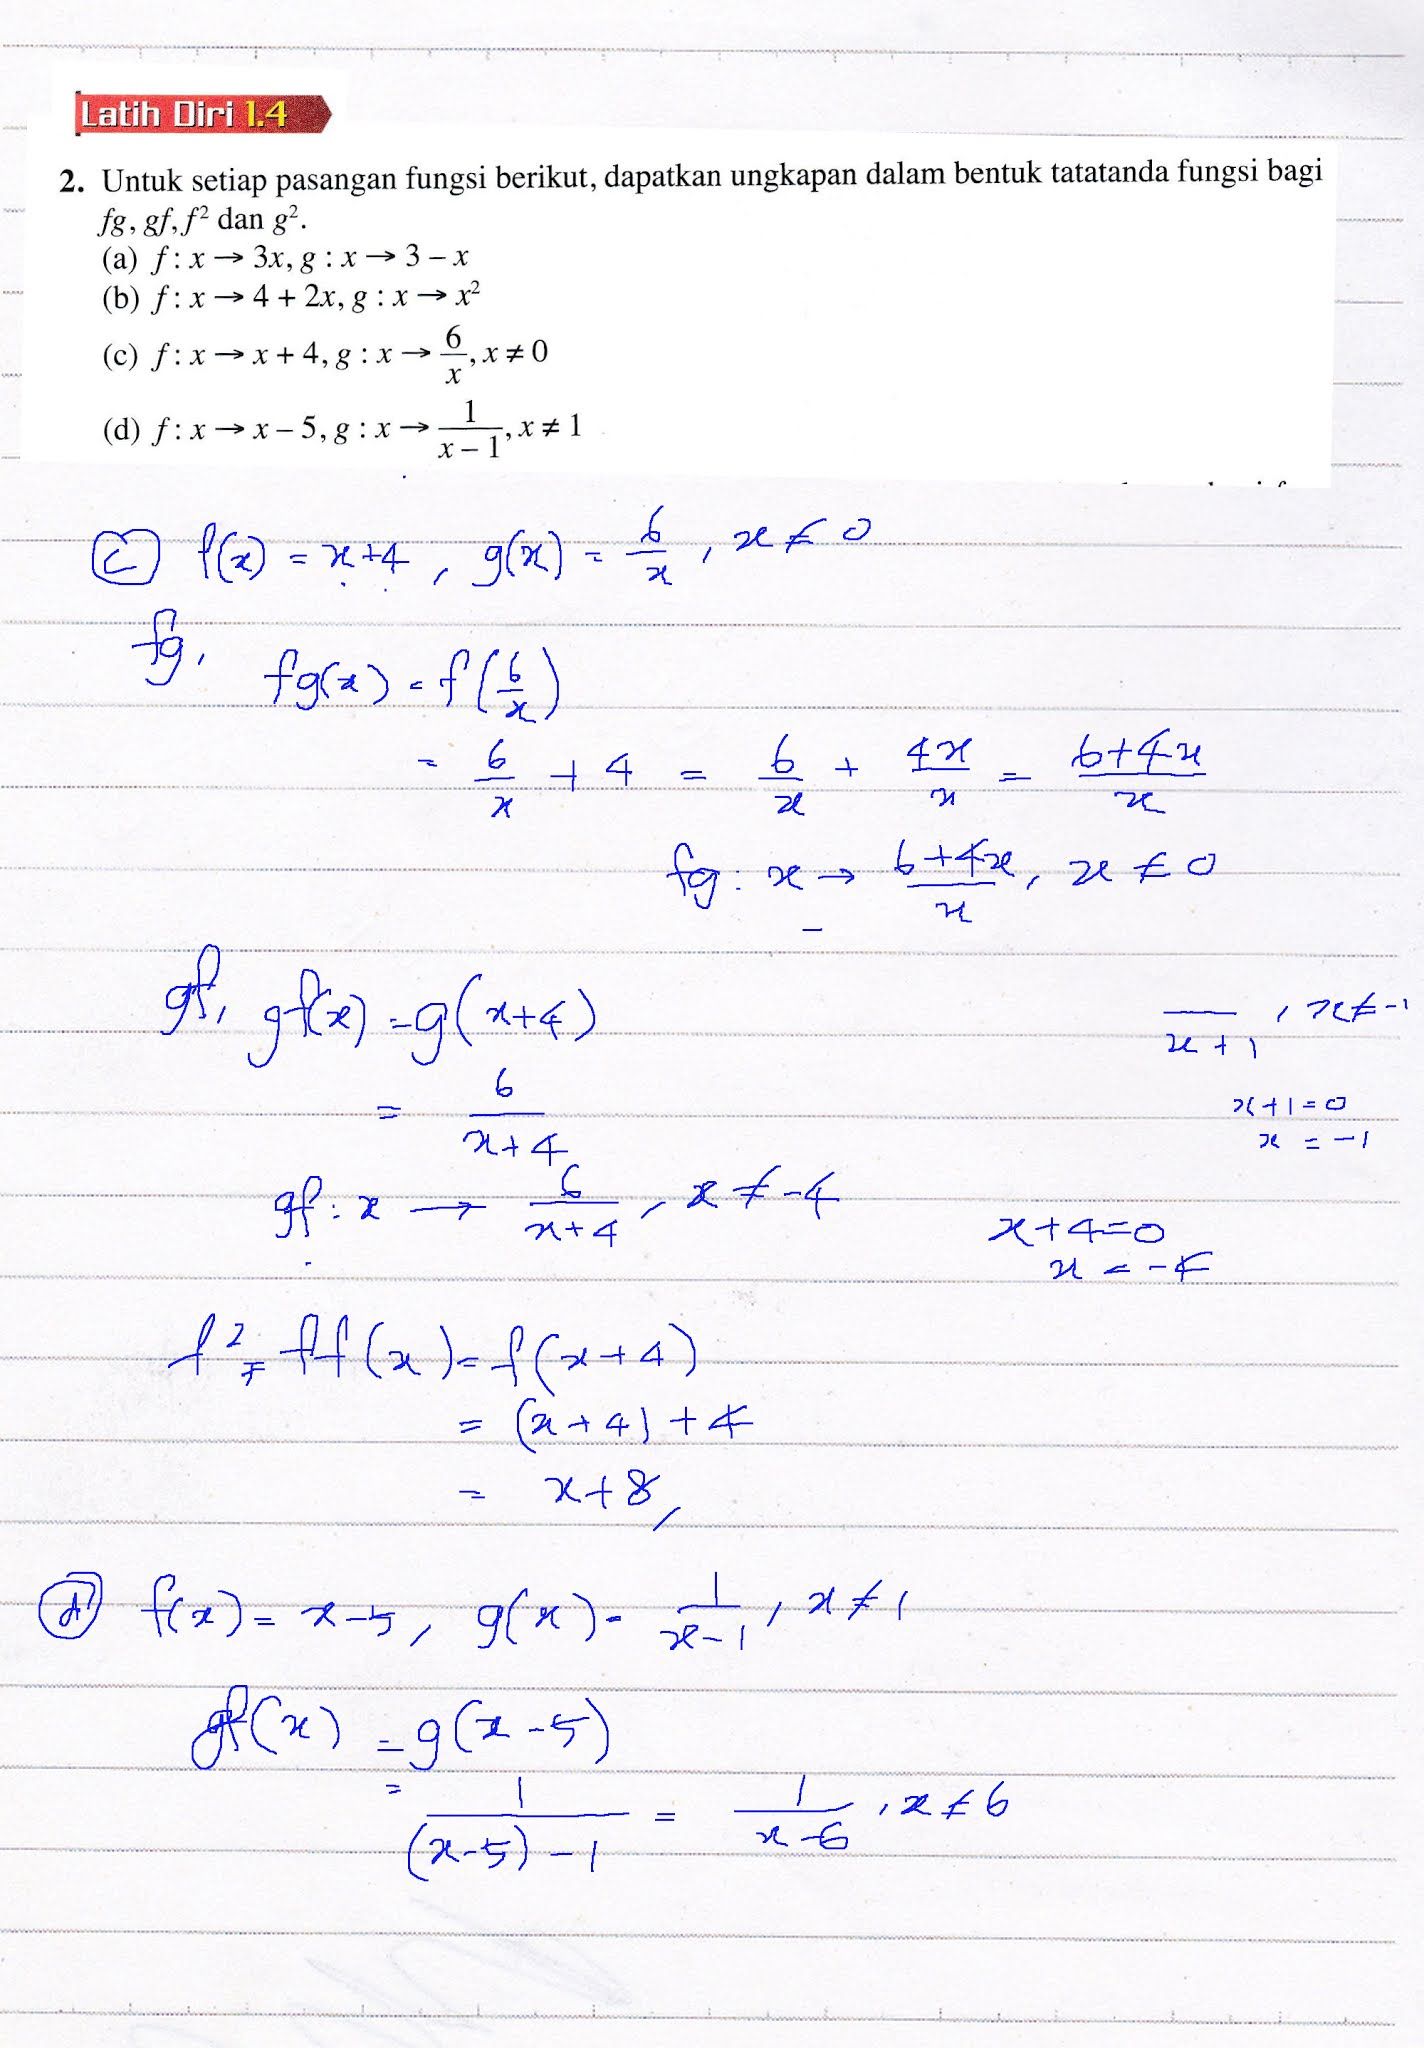 Latih Diri 1.4
2. Untuk setiap pasangan fungsi berikut, dapatkan ungkapan dalam bentuk tatatanda fungsi bagi
fg, gf, f² dan g².
(a) f : x → 3x, g : x → 3 – x
(b) f : x → 4 + 2x, g : x → x²
(c) f : x → x + 4, g : x → 6/x, x ≠ 0
(d) f : x → x – 5, g : x → 1/(x – 1), x ≠ 1
(c) f(x) = x+4, g(x) = 6/x, x ≠ 0
fg, fg(x) = f(6/x)
= 6/x + 4 = 6/x + 4x/x = (6+4x)/x
fg : x → (6+4x)/x, x ≠ 0
gf, gf(x) = g(x+4)
= 6/(x+4)
gf : x → 6/(x+4), x ≠ -4
/(x+1), x ≠ -1
x+1=0
x = -1
x+4=0
x = -4
f² = ff(x) = f(x+4)
= (x+4)+4
= x+8
(d) f(x) = x-5, g(x) = 1/(x-1), x ≠ 1
gf(x) = g(x-5)
= 1/((x-5)-1) = 1/(x-6), x ≠ 6